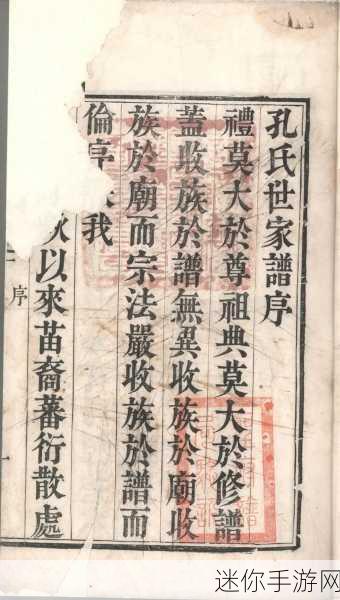 孔氏世家譜序
禮莫大於尊祖典莫大於修譜
蓋收族於譜無異收族於廟收
族於廟而宗法嚴收族於譜而
倫序 我
以來苗裔蕃衍散處
序
迷你手游网